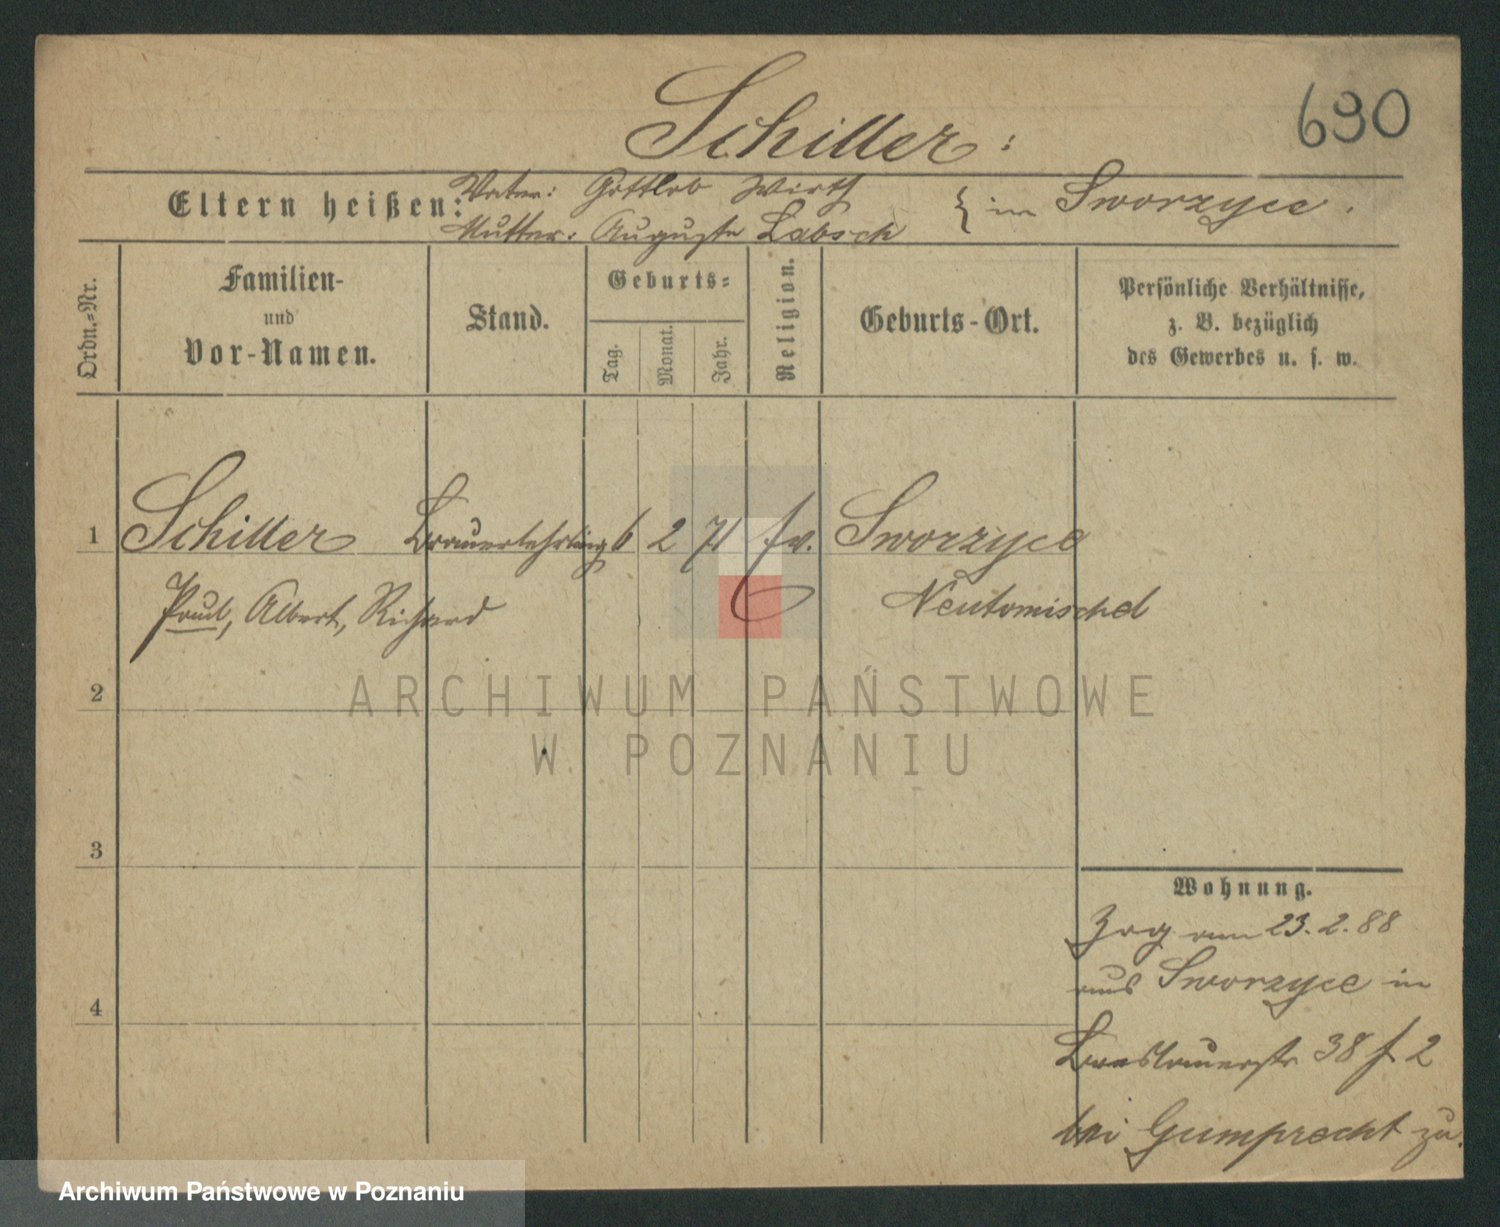 690
Schiller:
Eltern heißen: Vater: Gottlob Wirth
Mutter: Auguste Labsch } in Sworzyce.
Ordn.-Nr.
Familien-
und
Vor-Namen.
Stand.
Geburts-
Tag.
Monat.
Jahr.
Religion.
Geburts-Ort.
Persönliche Verhältnisse,
z. B. bezüglich
des Gewerbes u. s. w.
1 Schiller Brauerlehrling 6 2 71 ev. Sworzyce
Paul, Albert, Richard Neutomischel
2
3
4
Wohnung.
Zog am 23.2.88
aus Sworzyce in
Breslauerstr 38 f 2
bei Gumprecht zu.
ARCHIWUM PAŃSTWOWE
W POZNANIU
Archiwum Państwowe w Poznaniu